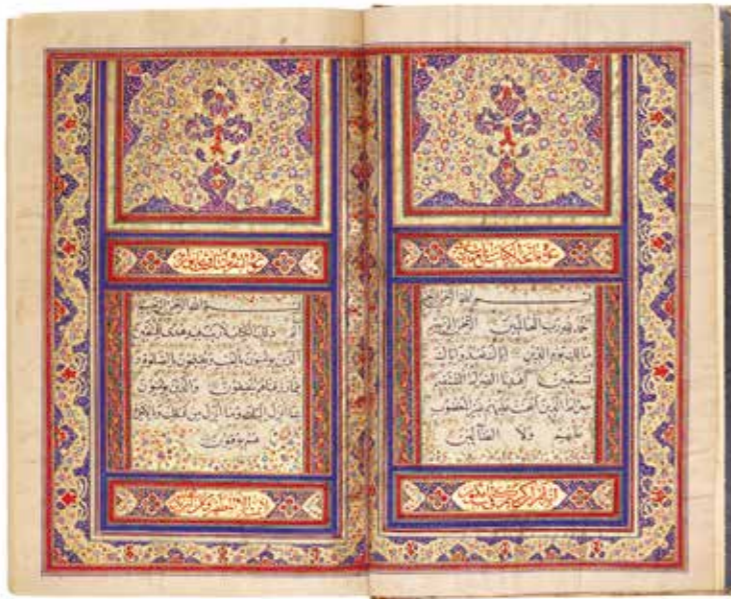 بسم الله الرحمن الرحيم
الحمد لله رب العالمين الرحمن الرحيم
مالك يوم الدين اياك نعبد واياك
نستعين اهدنا الصراط المستقيم
صراط الذين انعمت عليهم غير المغضوب
عليهم ولا الضالين
بسم الله الرحمن الرحيم
الم ذلك الكتاب لا ريب فيه هدى للمتقين
الذين يؤمنون بالغيب ويقيمون الصلوة و
مما رزقناهم ينفقون والذين يؤمنون
بما انزل اليك وما انزل من قبلك وبالاخرة
هم يوقنون